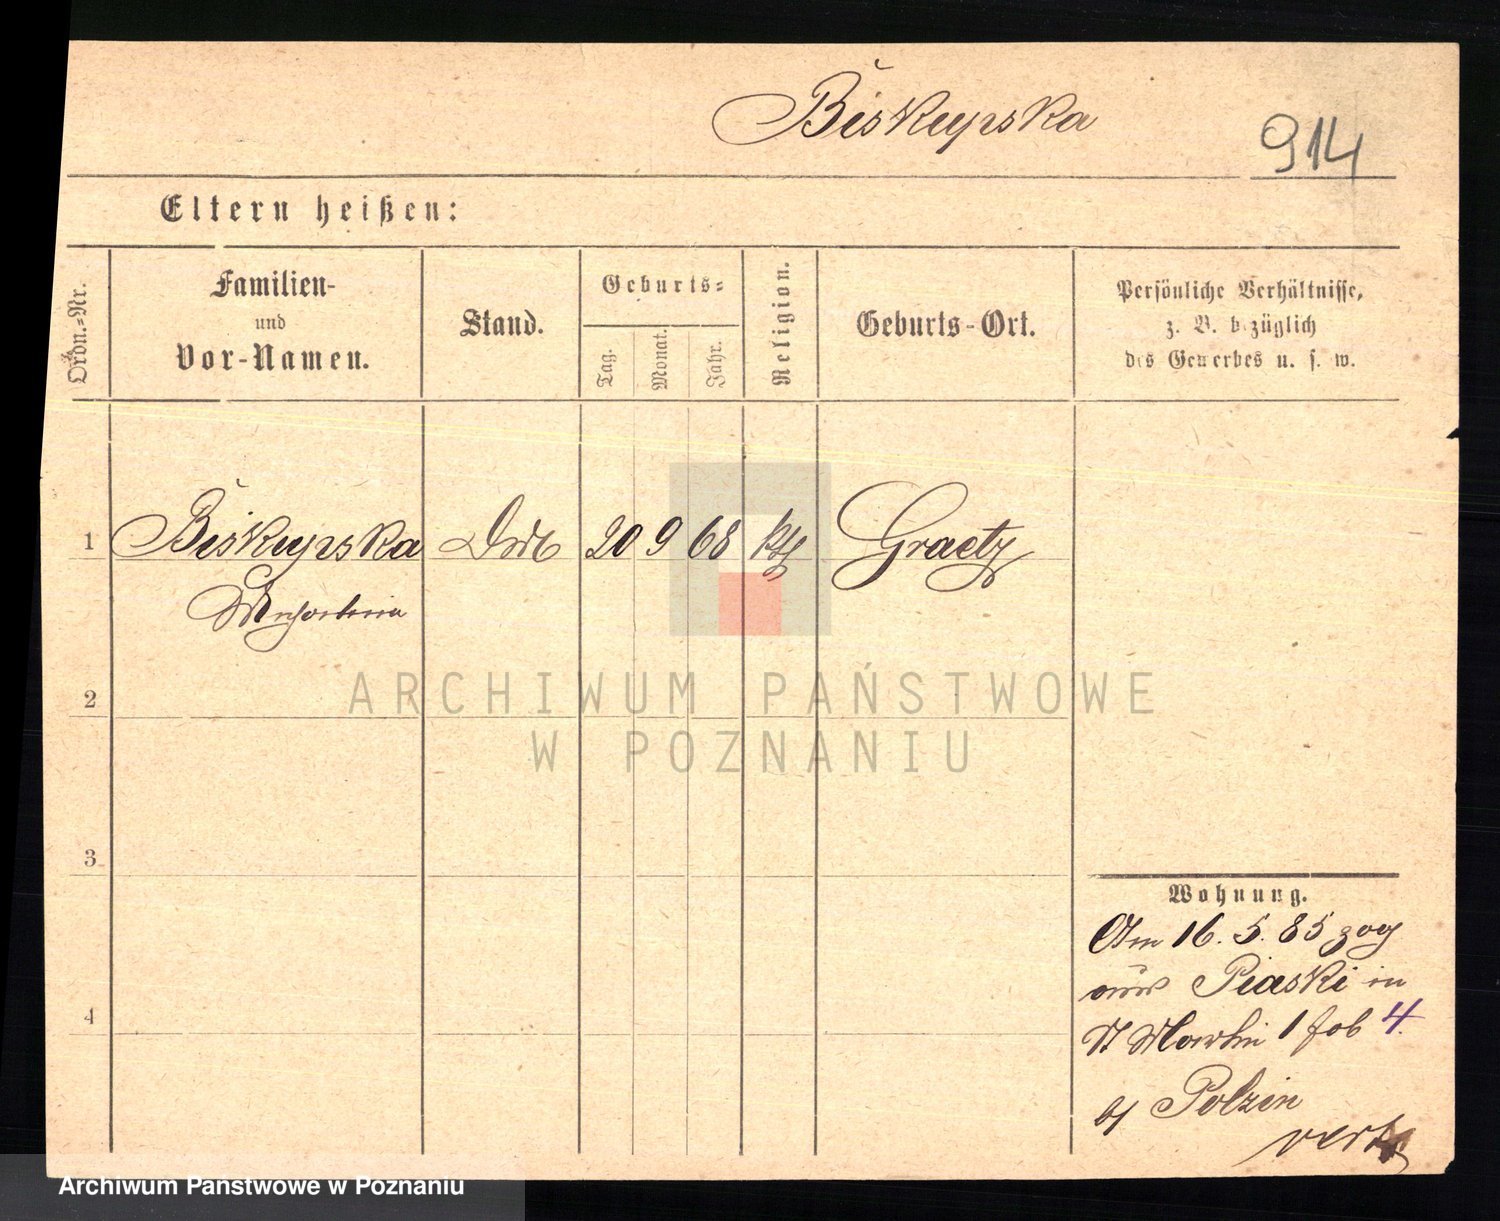 Biskupska
914
Eltern heißen:
Ordn.=Nr.
Familien-
und
Vor-Namen.
Stand.
Geburts=
Tag.
Monat.
Jahr.
Religion.
Geburts-Ort.
Persönliche Verhältnisse,
z. B. bezüglich
des Gewerbes u. s. w.
1 Biskupska 20 9 68 kth Graetz
2
ARCHIWUM PAŃSTWOWE
W POZNANIU
3
Wohnung.
Am 16. 5. 85 zog
aus Piaski in
St Martin 1 4.
Polzin
4
Archiwum Państwowe w Poznaniu